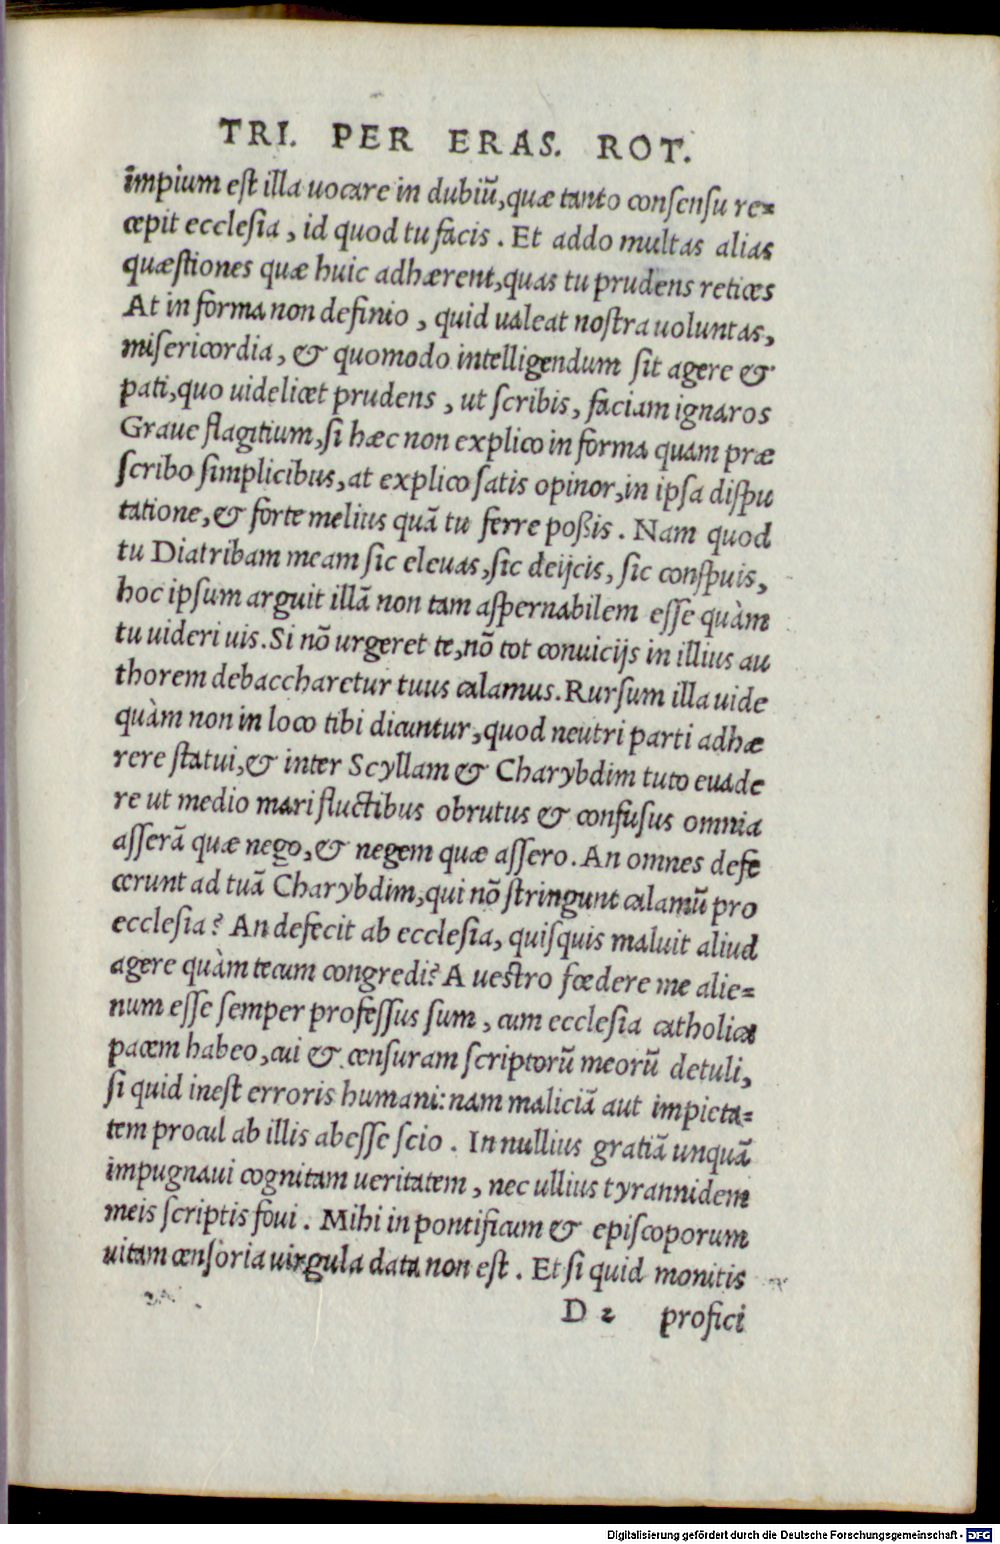 TRI. PER ERAS. ROT.
impium est illa uocare in dubiũ, quæ tanto consensu re=
cepit ecclesia, id quod tu facis. Et addo multas alias
quæstiones quæ huic adhærent, quas tu prudens retices
At in forma non definio, quid ualeat nostra uoluntas,
misericordia, & quomodo intelligendum sit agere &
pati, quo uidelicet prudens, ut scribis, faciam ignaros
Graue flagitium, si hæc non explico in forma quam præ
scribo simplicibus, at explico satis opinor, in ipsa dispu
tatione, & forte melius quã tu ferre poßis. Nam quod
tu Diatribam meam sic eleuas, sic deijcis, sic conspuis,
hoc ipsum arguit illã non tam aspernabilem esse quàm
tu uideri uis. Si nõ urgeret te, nõ tot conuicijs in illius au
thorem debaccharetur tuus calamus. Rursum illa uide
quàm non in loco tibi dicuntur, quod neutri parti adhæ
rere statui, & inter Scyllam & Charybdim tuto euade
re ut medio mari fluctibus obrutus & confusus omnia
asserã quæ nego, & negem quæ assero. An omnes defe
cerunt ad tuã Charybdim, qui nõ stringunt calamũ pro
ecclesia? An defecit ab ecclesia, quisquis maluit aliud
agere quàm tecum congredi? A uestro fœdere me alie=
num esse semper professus sum, cum ecclesia catholica
pacem habeo, cui & censuram scriptorũ meorũ detuli,
si quid inest erroris humani: nam maliciã aut impieta=
tem procul ab illis abesse scio. In nullius gratiã unquã
impugnaui cognitam ueritatem, nec ullius tyrannidem
meis scriptis foui. Mihi in pontificum & episcoporum
uitam censoria uirgula data non est. Et si quid monitis
D 2 profici
Digitalisierung gefördert durch die Deutsche Forschungsgemeinschaft - DFG